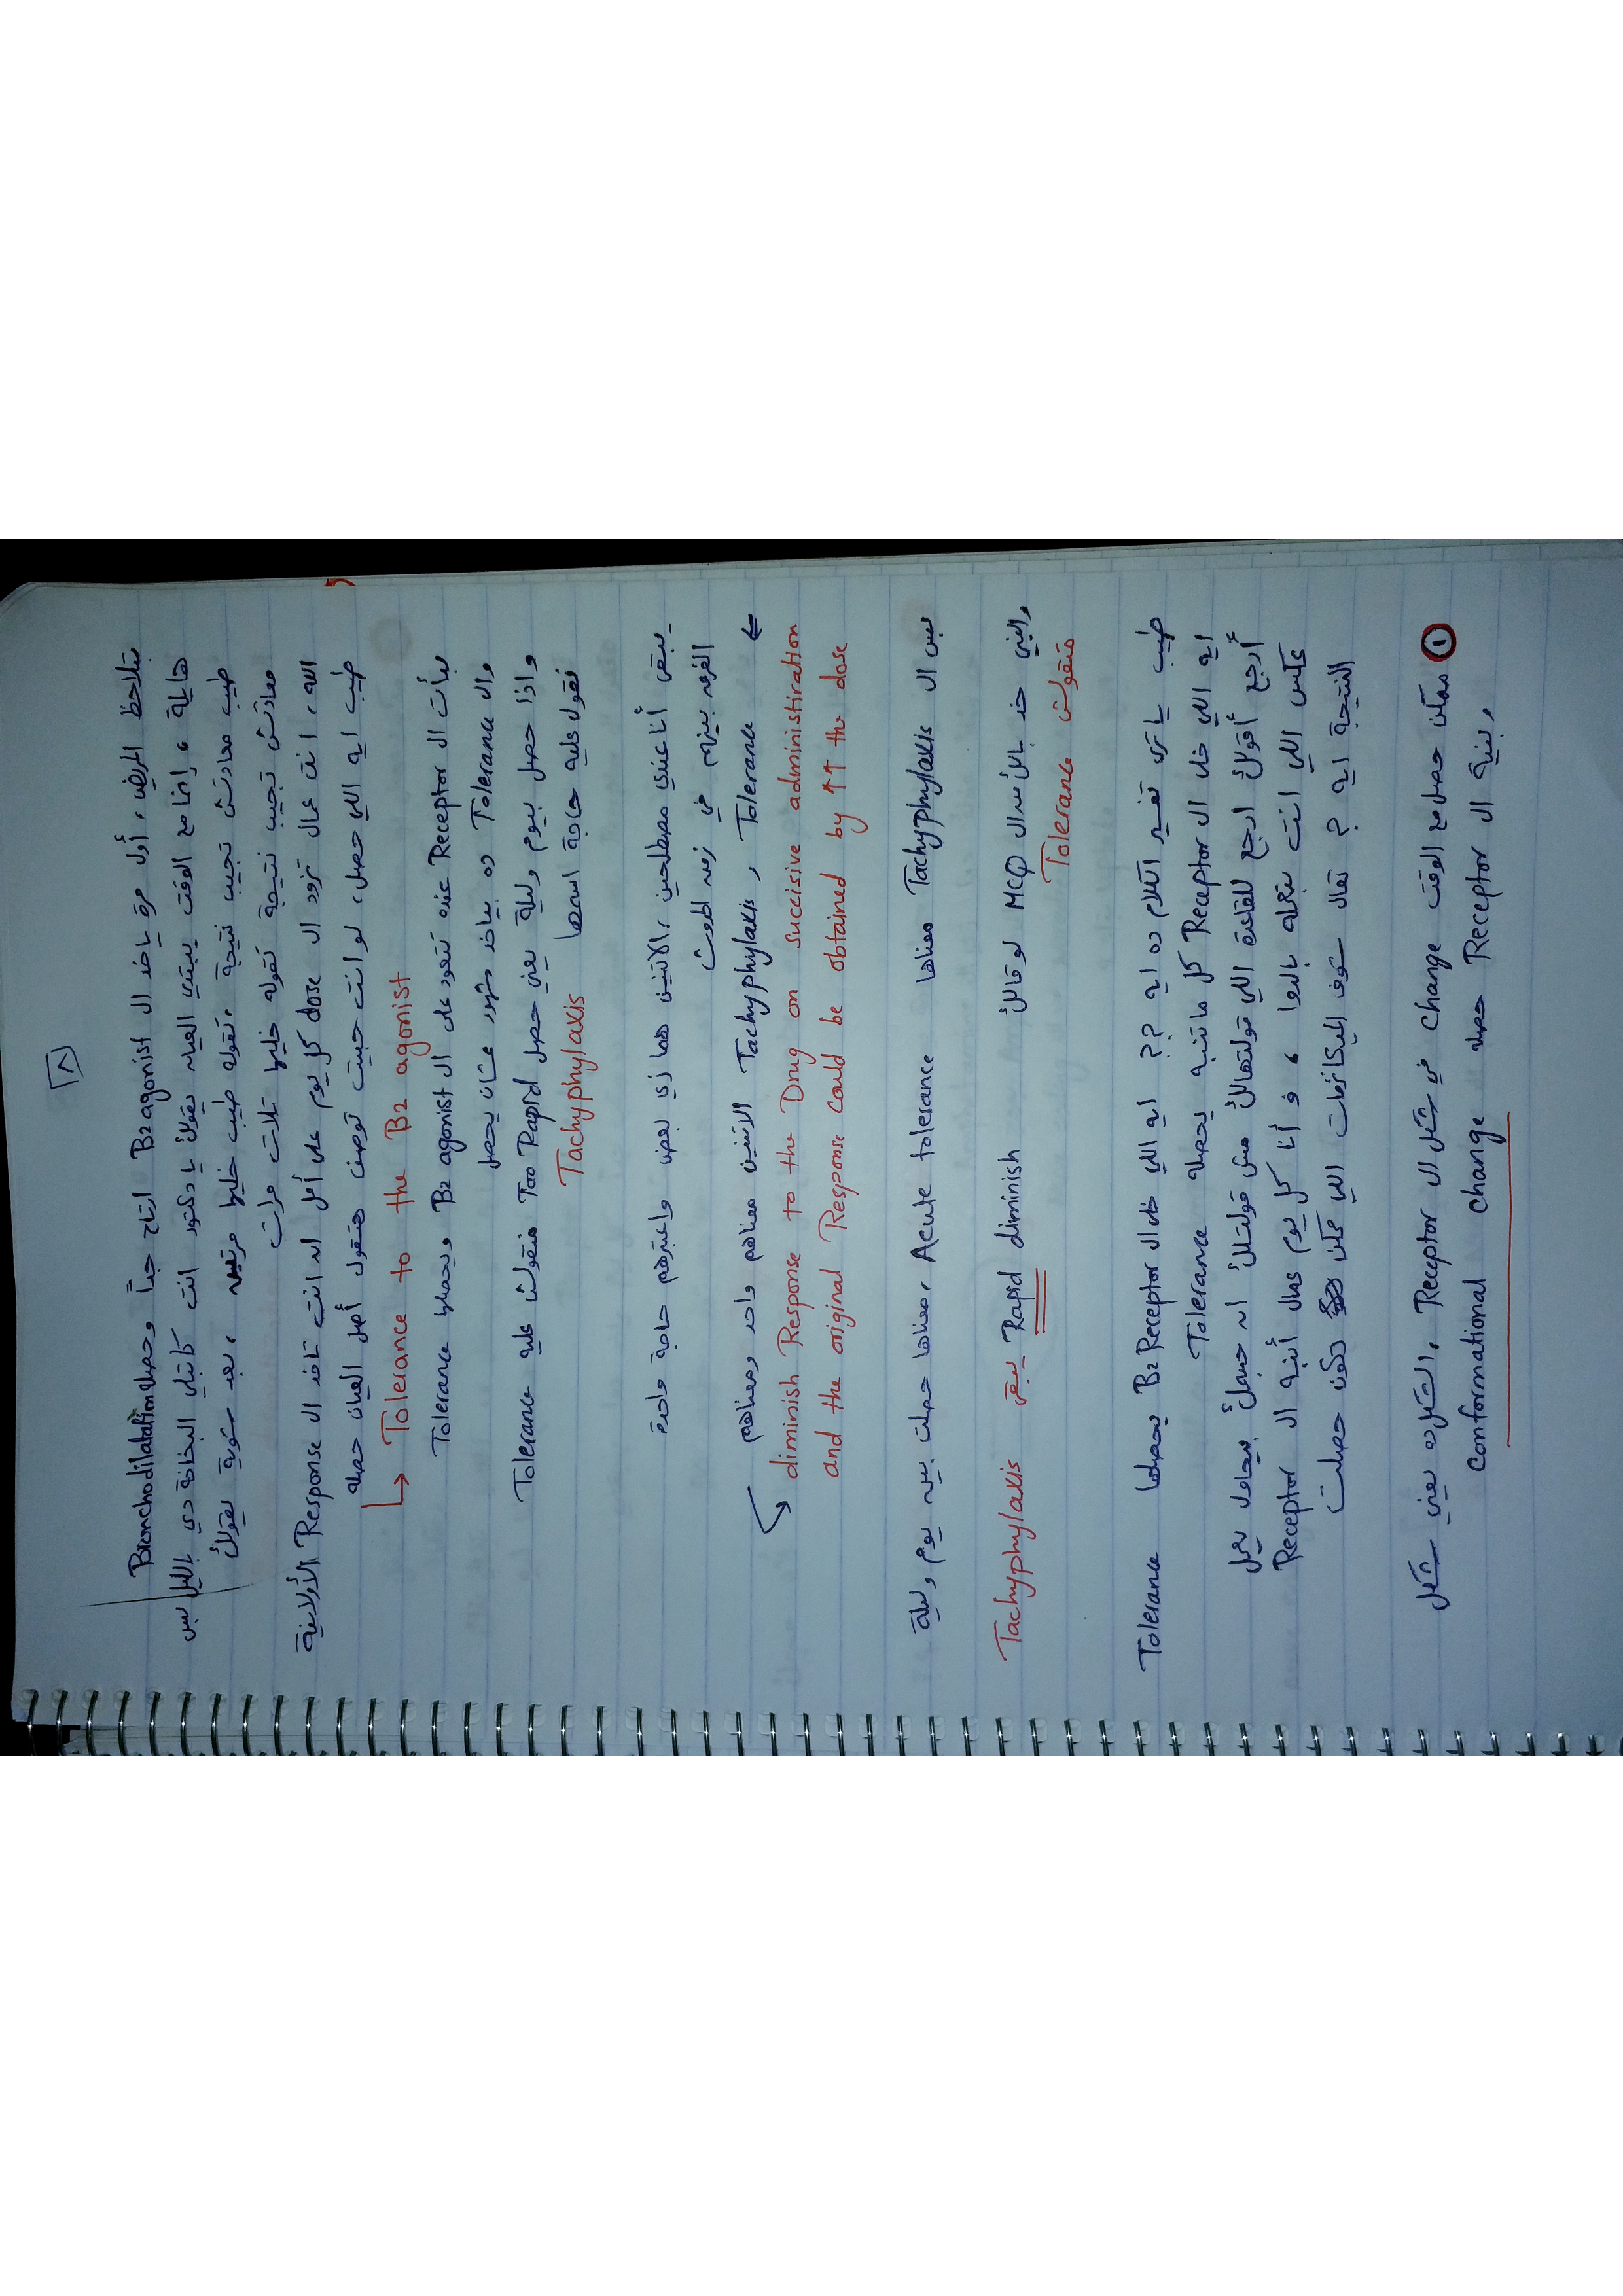 ٨
بتلاحظ المريض، أول مرة ياخد ال B2 agonist ارتاح جداً وحصله Bronchodilatation
هايلة، إنما مع الوقت يبتدي العيان يقولك يا دكتور انت كاتبلي البخاخة دي بالليل بس
طيب معادتش تجيب نتيجة، تقوله طيب خليها مرتين، بعد شوية يقولك
معادتش تجيب نتيجة تقوله خليها تلات مرات
الله، انت عمال تزود ال dose كل يوم على أمل ان انت تاخد ال Response الأولانية
طيب ايه اللي حصل، لو انت حبيت توصف هتقول أصل العيان حصله
↳ Tolerance to the B2 agonist
بدأت ال Receptor عنده تتعود على ال B2 agonist ويحصلها Tolerance
وال Tolerance ده بياخد شهور عشان يحصل
واذا حصل بيوم وليلة يعني حصل Too Rapid منقولش عليه Tolerance
نقول عليه حاجة اسمها Tachyphylaxis
يبقى أنا عندي مصطلحين، الاتنين هما زي بعض واعتبرهم حاجة واحدة
الفرق بينهم في زمن الحدوث
⇐ Tolerance و Tachyphylaxis الاتنين معناهم واحد ومعناهم
diminish Response to the Drug on succisive administiration
and the original Response could be obtained by ↑↑ the dose
بس ال Tachyphylaxis معناها Acute tolerance، معناها حصلت بين يوم وليلة
والنبي خد بالك من ال MCQ لو قالك Rapid diminish يبقى Tachyphylaxis
منقولش Tolerance
طيب يا ترى تفسير الكلام ده ايه ?? ايه اللي خلى ال B2 Receptor يحصلها Tolerance
ايه اللي خلى ال Receptor كل ما تنبه يحصله Tolerance
أرجع أقولك ارجع للقاعدة اللي قولتهالك مش قولتلك ان جسمك بيحاول يعمل
عكس اللي انت بتعمله بالدوا، و أنا كل يوم عمال أنبه ال Receptor
النتيجة ايه ? تعال شوف الميكانزمات اللي ممكن تكون حصلت
① ممكن حصل مع الوقت change في شكل ال Receptor، الشكل ده يعني شكل
وبنية ال Receptor حصله conformational change